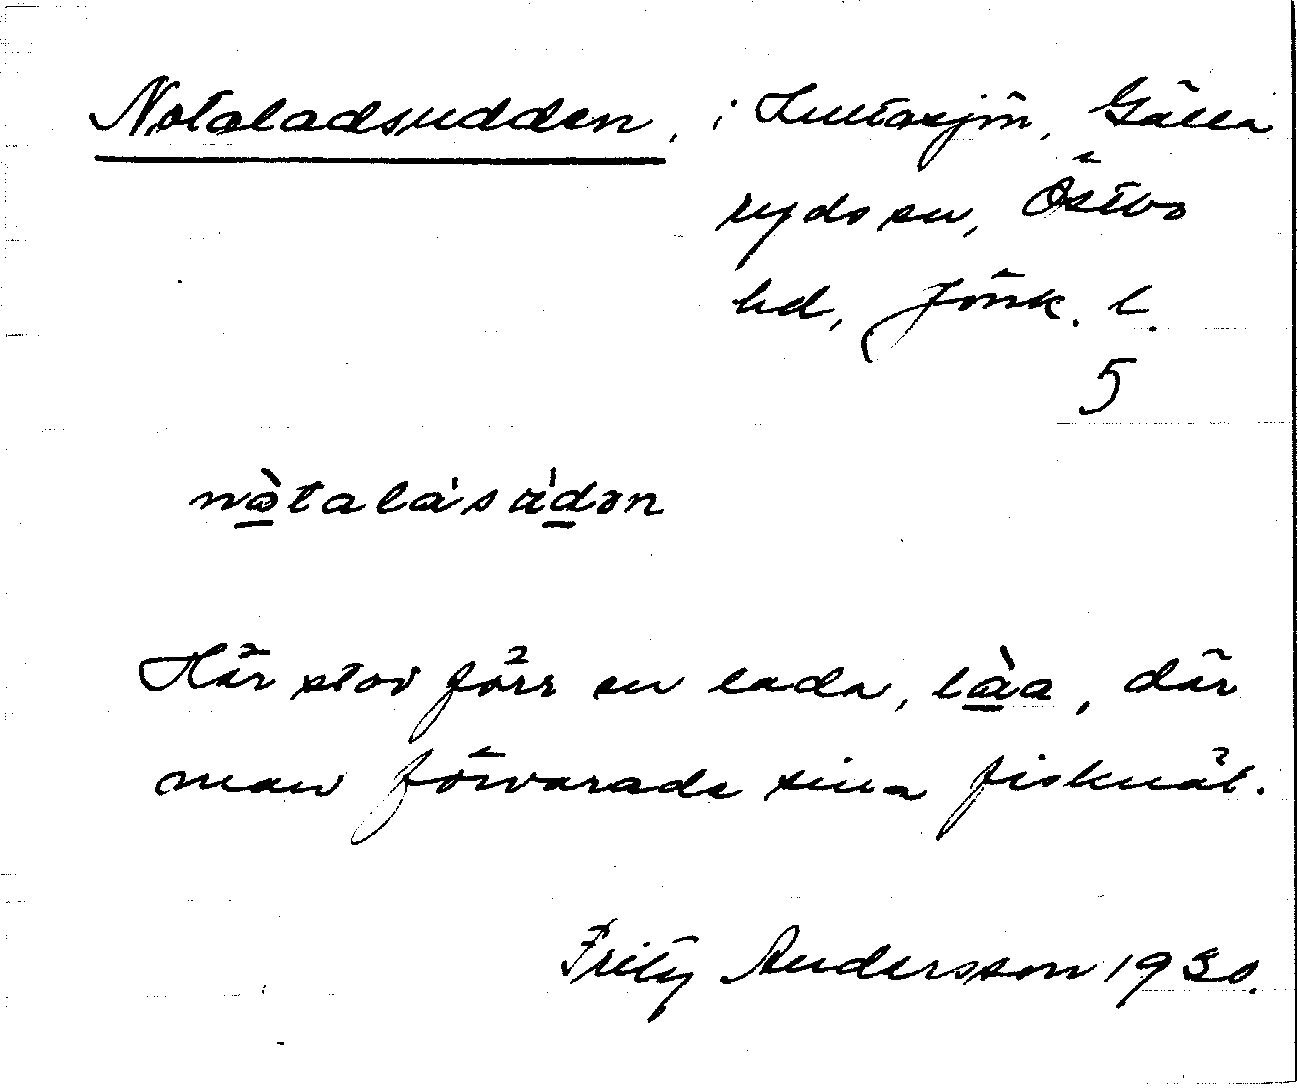 Notaladsudden, i Luttasjön, Gälla
ryds sn, Östbo
hd, Jönk. l.
5
nòtalásúdən
Här stod förr en lada, làa, där
man förvarade sina fisknät.
Fritz Andersson 1930.